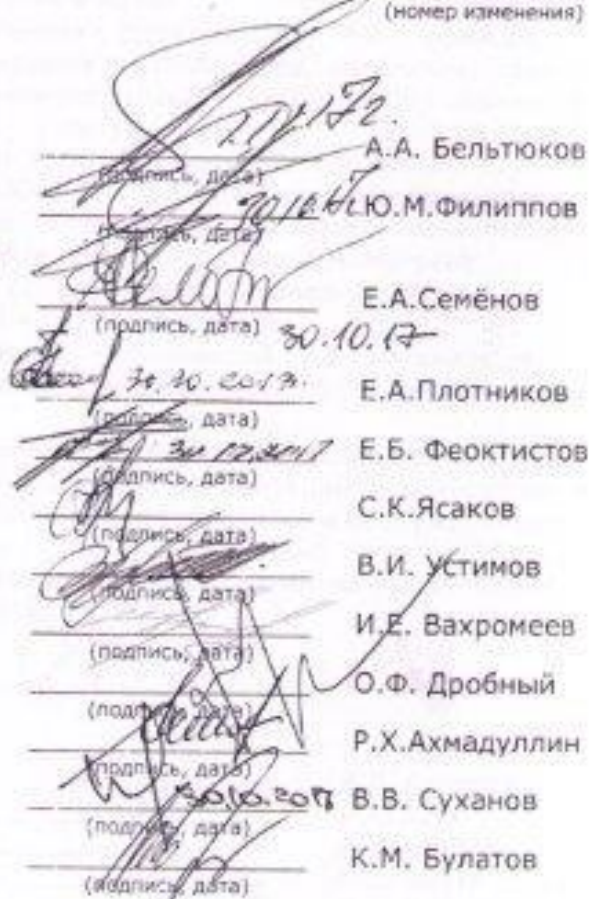 (номер изменения)
А.А. Бельтюков
(подпись, дата)
Ю.М.Филиппов
(подпись, дата)
Е.А.Семёнов
(подпись, дата) 30.10.17
Е.А.Плотников
(подпись, дата)
Е.Б. Феоктистов
(подпись, дата)
С.К.Ясаков
(подпись, дата)
В.И. Устимов
(подпись, дата)
И.Е. Вахромеев
(подпись, дата)
О.Ф. Дробный
(подпись, дата)
Р.Х.Ахмадуллин
(подпись, дата)
30.10.2017 В.В. Суханов
(подпись, дата)
К.М. Булатов
(подпись, дата)